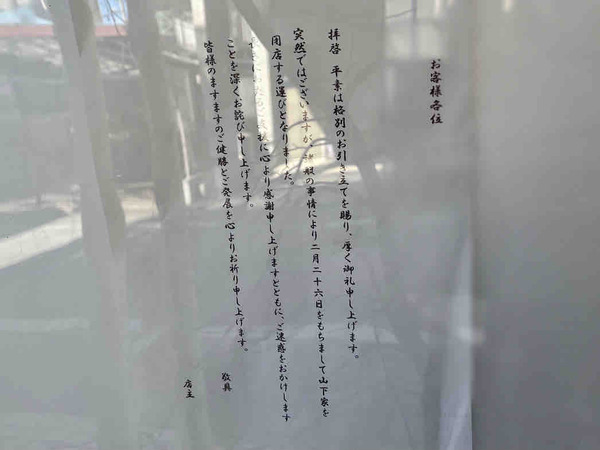 お客様各位
拝啓 平素は格別のお引き立てを賜り、厚く御礼申し上げます。
突然ではございますが、諸般の事情により二月二十六日をもちまして山下家を
閉店する運びとなりました。
心より感謝申し上げますとともに、ご迷惑をおかけします
ことを深くお詫び申し上げます。
皆様のますますのご健勝とご発展を心よりお祈り申し上げます。
敬具
店主